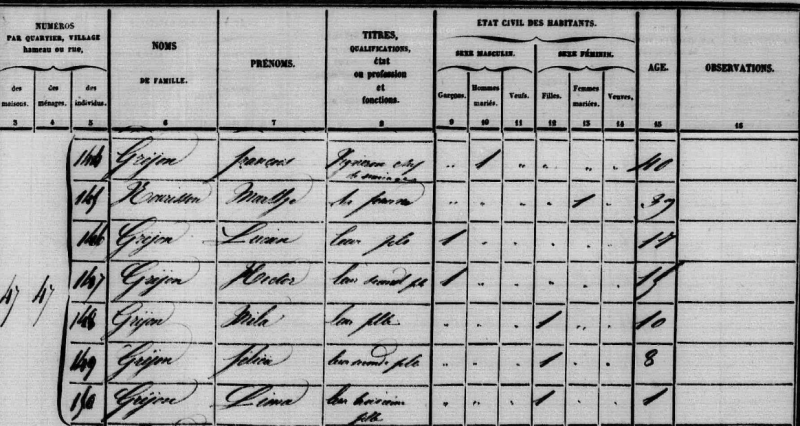 NUMÉROS
PAR QUARTIER, VILLAGE
hameau ou rue,
des maisons. des ménages. des individus.
NOMS
DE FAMILLE.
PRÉNOMS.
TITRES,
QUALIFICATIONS,
état
ou profession
et
fonctions.
ÉTAT CIVIL DES HABITANTS.
SEXE MASCULIN. SEXE FÉMININ.
Garçons. Hommes mariés. Veufs. Filles. Femmes mariées. Veuves.
AGE.
OBSERVATIONS.
3 4 5 6 7 8 9 10 11 12 13 14 15 16
Grejon françois Vigneron chef
de ménage 1 40
145 Nourisson sa femme 1 39
146 Grejon Lucien leur fils 1 17
47 47 147 Grejon Hector leur second fils 1 15
148 Grejon leur fille 1 10
149 Grejon leur seconde fille 1 8
150 Grejon Léma leur troisième
fille 1 1